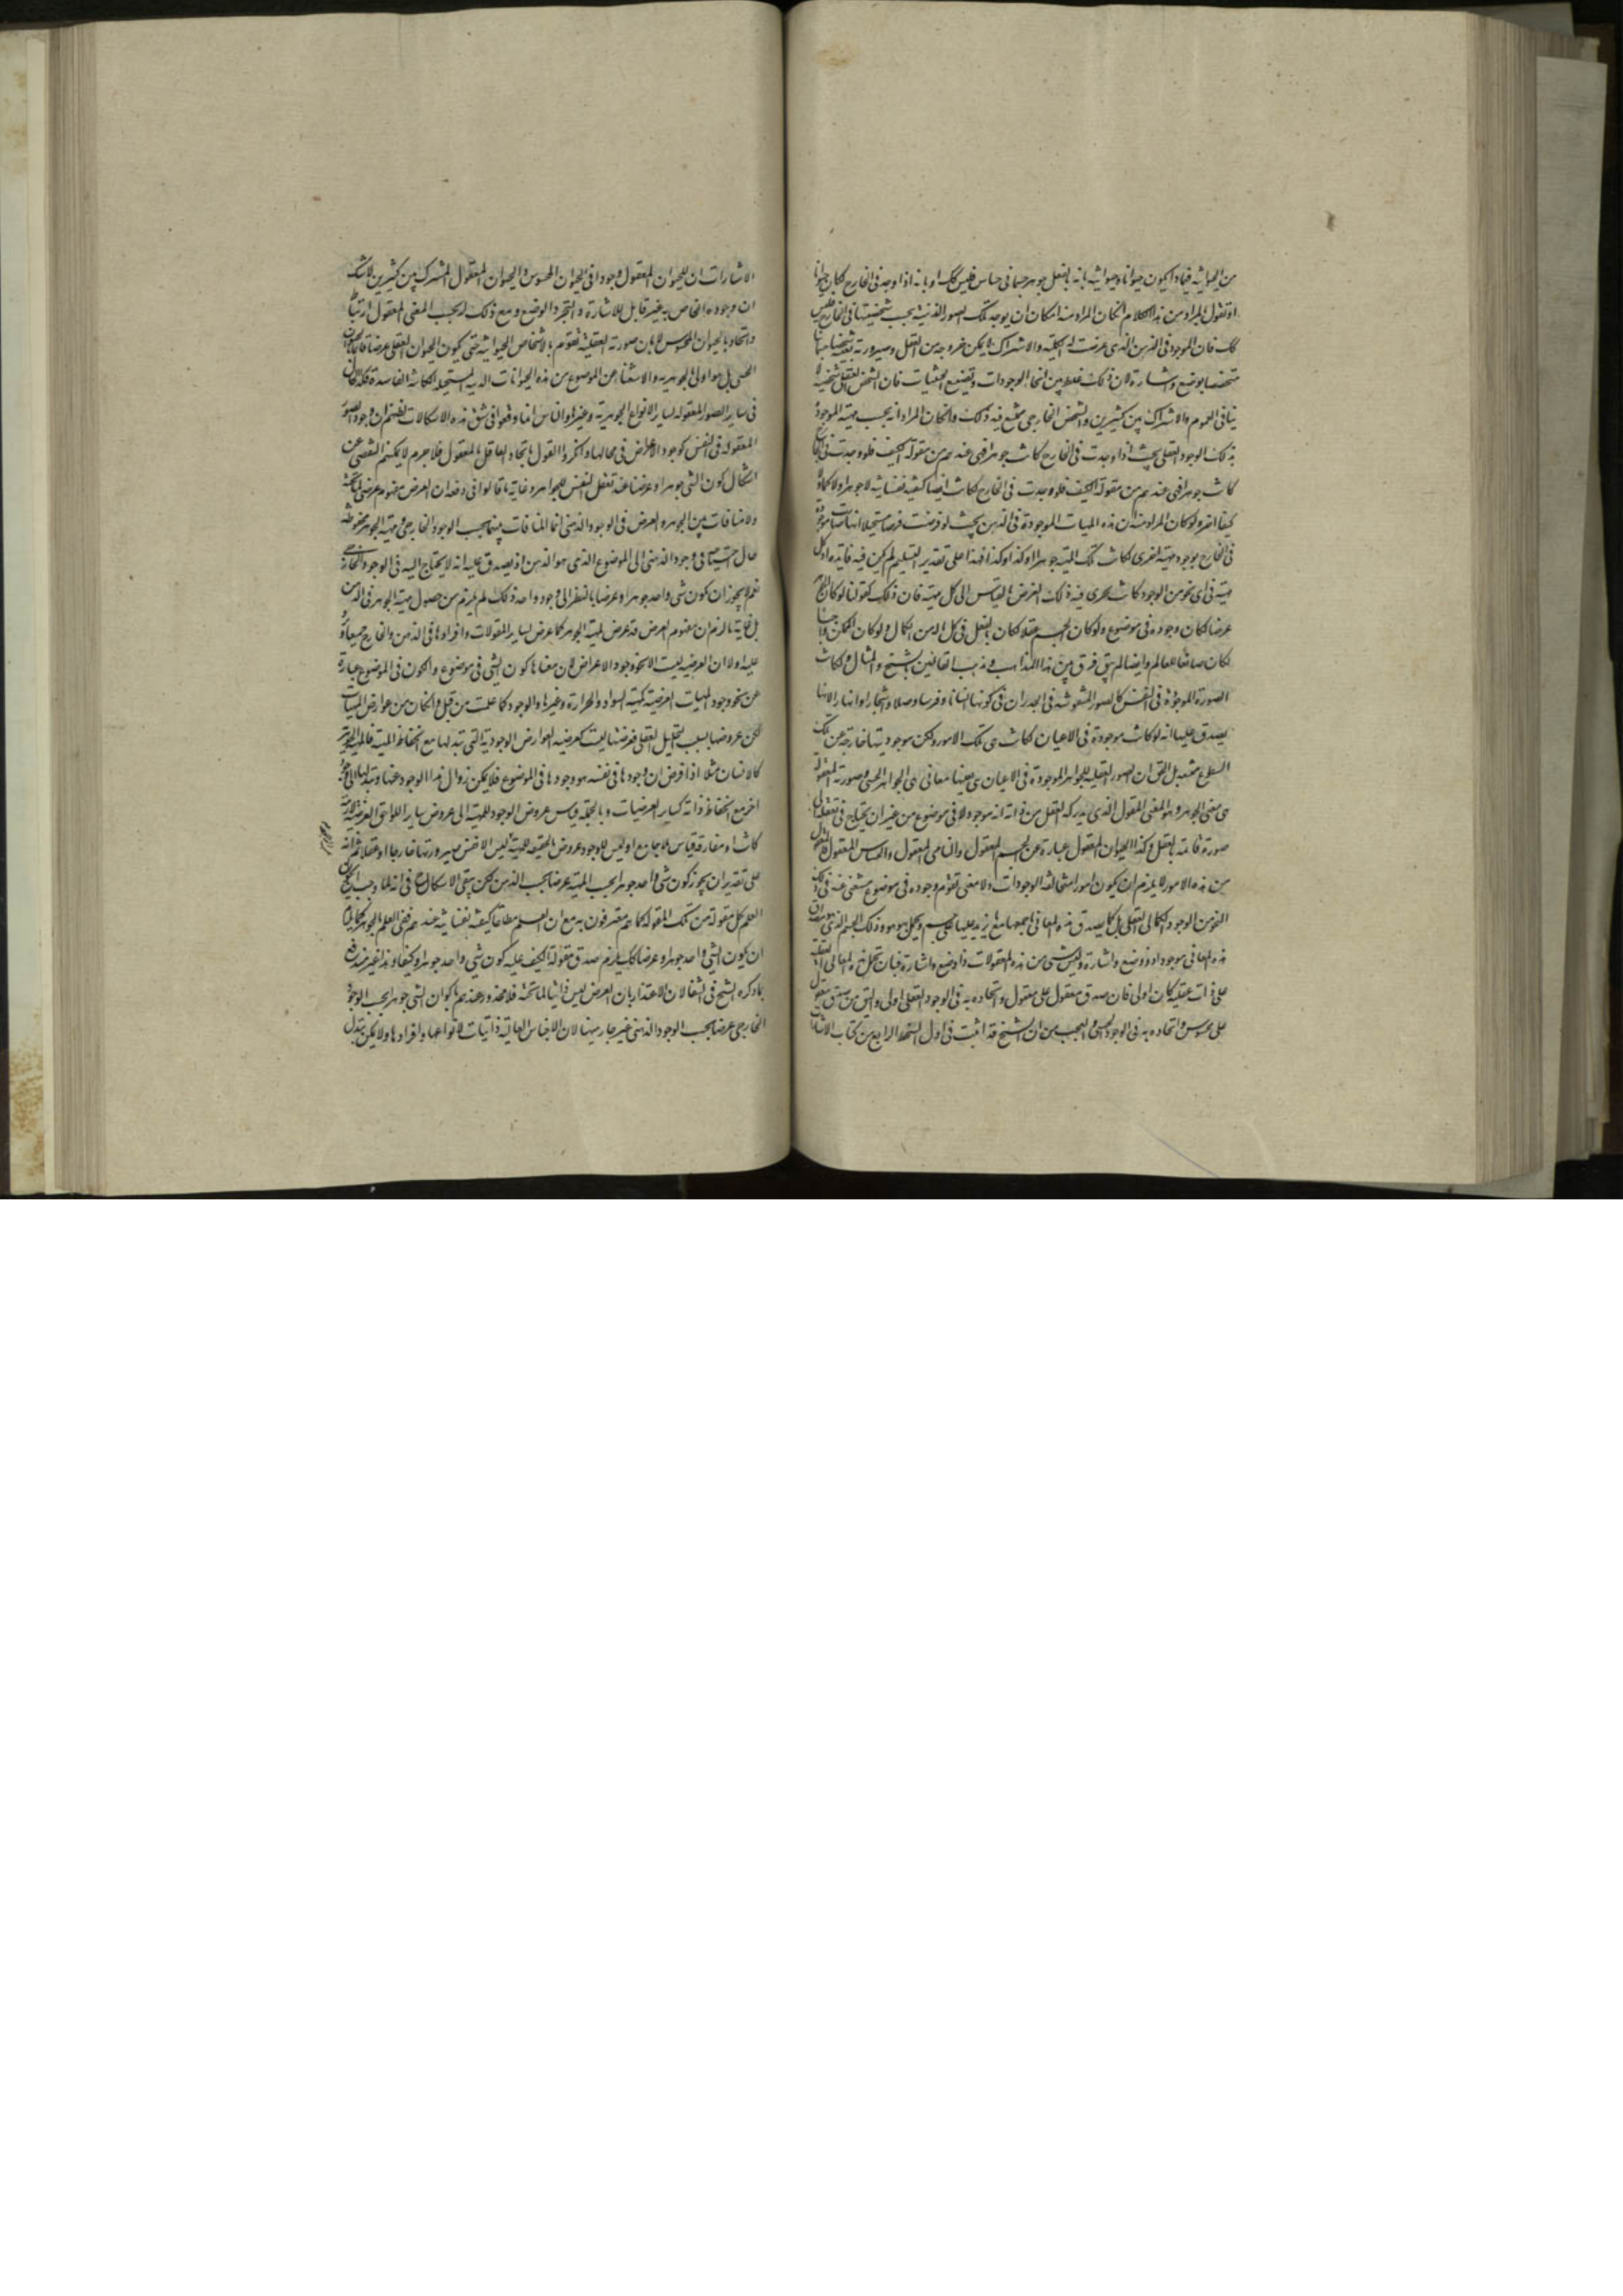 من الحيوانية فماذا يكون حيوانا وحيوانيته بانه بالفعل جوهر جسمانى حساس فليس كك او بانه اذا وجد فى الخارج لكان حيوانا
او تقول المراد من هذا الكلام ان كان المراد منه امكان ان يوجد تلك الصور الذهنية بحسب شخصيتها فى الخارج فليس
كك فان الموجود فى الذهن الذى عرضت له الكلية والاشتراك لا يمكن خروجه من العقل وصيرورته بعينه شخصا جسمانيا
متخصصا بوضع واشارة لان ذلك خلط بين انحاء الوجودات وتضييع الحيثيات فان الشخص العقلى شخصيته لا
ينافى العموم والاشتراك بين كثيرين والشخص الخارجى يمتنع فيه ذلك وان كان المراد انه بحسب مهيته الموجودة
بذلك الوجود العقلى بحيث اذا وجدت فى الخارج كانت جوهرا فهى عندهم من مقولة الكيف فلو وجدت فى الخارج
كانت جوهرا فهى عندهم من مقولة الكيف فلو وجدت فى الخارج لكانت ايضا كيفية نفسانية لا جوهرا ولا كما ولا
كيفا اخر ولو كان المراد منه ان هذه المهيات الموجودة فى الذهن بحيث لو فرضت فرضا مستحيلا انها صارت موجودة
فى الخارج بوجود مهية اخرى لكانت تلك المهية جوهرا او كذا او كذا فهذا على تقدير التسليم لم يكن فيه فايدة اذ كل
مهية فى اى نحو من الوجود كانت يجرى فيه ذلك الفرض بالقياس الى كل مهية فان ذلك كقولنا لو كان الجوهر
عرضا لكان وجوده فى موضوع ولو كان الجسم عقلا لكان بالفعل فى كل ماله من الكمال ولو كان الممكن واجبا
لكان صانعا للعالم وايضا لم يبق فرق بين هذا المذهب ومذهب القائلين بالشبح والمثال ولكانت
الصورة الموجودة فى النفس كالصور المنقوشة فى الجدران فى كونها انسانا وفرسا وفيلا واشجارا وانهارا لانها
يصدق عليها انه لو كانت موجودة فى الاعيان لكانت هى تلك الامور ولكن موجوديتها خارجة عن تلك
السطوح ممتنعة بل الحق ان الصور العقلية للجواهر الموجودة فى الاعيان هى بعينها معانى هى الجواهر الحسى وصورته المعقولة
هى معنى الجوهر وهو المعنى المعقول الذى يدركه العقل من ذاته انه موجود لا فى موضوع من غير ان يحتاج فى تعقله الى
صورة قائمة بالعقل وكذا الحيوان المعقول عبارة عن الجسم المعقول والنامى المعقول والحساس المعقول فالمعقول
من هذه الامور لا يلزم ان يكون امورا متخالفة الوجودات ولا معنى تقوم وجوده فى موضوع مستغنى عنه فى ذلك
النحو من الوجود الكمالى العقلى بل كما يصدق هذه المعانى باجمعها مع ما يزيد عليها على جسم ويحمل بهو هو وذلك الجسم الذى يصدق
هذه المعانى موجود او ذو وضع واشارة وليس شئ من هذه المعقولات ذا وضع واشارة فبان تحمل هذه المعانى العقلية
على ذات عقلية كان اولى فان صدق معقول على معقول واتحاده به فى الوجود العقلى اولى واليق من صدق معقول
على محسوس واتحاده به فى الوجود الحسى والعجب من ان الشيخ قد اثبت فى اول النمط الرابع من كتاب الاشارات
الاشارات ان للحيوان المعقول وجودا فى الحيوان المحسوس والحيوان المعقول المشترك بين كثيرين لا شك
ان وجوده الخاص به غير قابل للاشارة والتجرد الوضع ومع ذلك له بحسب المعنى المعقول ارتباطا
واتحاد بالحيوان المحسوس لا بان صورته العقلية تقوم بالاشخاص الحيوانية حتى يكون الحيوان العقلى عرضا قائما بالحيوان
الحسى بل هو اولى بالجوهرية والاستغناء عن الموضوع من هذه الحيوانات الدنية المستحيلة الكائنة الفاسدة وكذا الحال
فى سائر الصور المعقولة لساير الانواع الجوهرية وغيرها والناس انما وقعوا فى مثل هذه الاشكالات لظنهم ان وجود الصور
المعقولة فى النفس كوجود الاعراض فى محالها وانكروا القول باتحاد العاقل بالمعقول فلا جرم لا يمكنهم التفصى عن
اشكال كون الشئ جوهرا وعرضا عند تعقل النفس للجواهر وغاية ما قالوا فى دفعه ان العرض مفهوم عرضى لما تحته
ولا منافات بين الجوهر والعرض فى الوجود الذهنى انما المنافات بينهما بحسب الوجود الخارجى ومهية الجوهر محفوظة
حال احتياجها فى وجودها الذهنى الى الموضوع الذى هو الذهن اذ يصدق عليه انه لا يحتاج اليه فى الوجود الخارجى
نعم لا يجوز ان يكون شئ واحد جوهرا وعرضا بالنظر الى وجود واحد وذلك لم يلزم من حصول مهية الجوهر فى الذهن
بل غاية ما لزم ان مفهوم العرض قد عرض لمهية الجوهر كما عرض لساير المقولات وافرادها فى الذهن والخارج جميعا ويرد
عليه اولا ان العرضية ليست الا نحو وجود الاعراض لان معناها كون الشئ فى موضوع والكون فى الموضوع عبارة
عن نحو وجود المهيات العرضية كمهية السواد والحرارة وغيرها والوجود كما علمت من قبل وان كان من عوارض المهيات
لكن عروضها بحسب التحليل العقلى فعرضها ليست كعرضية العوارض الوجودية التى تبدلها مع انحفاظ المهية فالمهية الجوهرية
كالانسان مثلا اذا فرض ان وجودها فى نفسه هو وجودها فى الموضوع فلا يمكن زوال هذا الوجود عنها وتبدلها الى وجود
اخر مع انحفاظ ذاته كسائر العرضيات وبالجملة قياس عروض الوجود للمهية الى عروض ساير اللواحق العرضية لازمة
كانت او مفارقة قياس بلا جامع اذ ليس للوجود عروض بالحقيقة للمهية ليس الا نفس صيرورتها خارجا او عقلا ثم انه
على تقدير ان يجوز كون شئ واحد جوهرا بحسب المهية عرضا بحسب الذهن لكن يبقى الاشكال فى انه لما وجب ان يكون
العلم بكل مقولة من تلك المقولة كما هم معترفون به مع ان العلم مطلقا كيفية نفسانية عندهم ففى العلم بالجوهر كما يلزم
ان يكون الشئ الواحد جوهرا وعرضا كك يلزم صدق مقولة الكيف عليه كون شئ واحد جوهرا وكيفا وهذا غير مندفع
بما ذكره الشيخ فى الشفا لان الاعتذار بان العرض ليس ذاتيا لما تحته فلا محذور عندهم بكون الشئ جوهرا بحسب الوجود
الخارجى عرضا بحسب الوجود الذهنى غير جار ههنا لان الاجناس العالية ذاتيات لانواعها وافرادها ولا يمكن تبدل